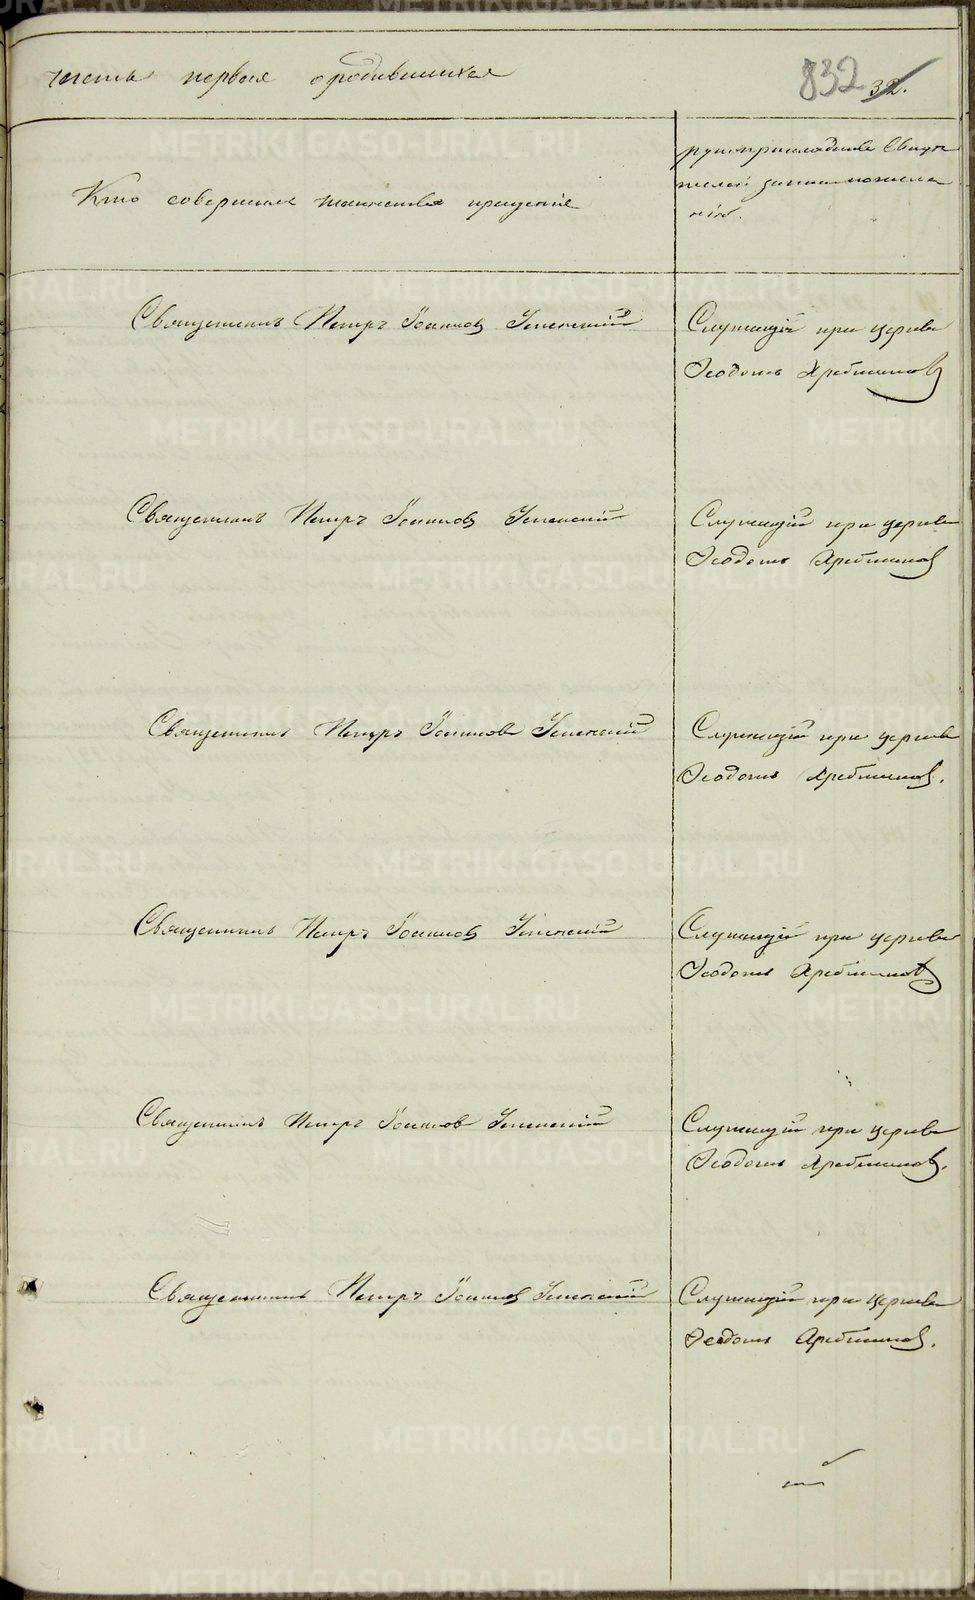 часть первая о родившихся
832 32.
Кто совершалъ таинство крещенія
рукоприкладство свидѣ
телей записи по жела
нію.
Священникъ Петръ Іоанновъ Успенскій
Служащій при церкви
Ѳеодотъ
Священникъ Петръ Іоанновъ Успенскій
Служащій при церкви
Ѳеодотъ
Священникъ Петръ Іоанновъ Успенскій
Служащій при церкви
Ѳеодотъ
Священникъ Петръ Іоанновъ Успенскій
Служащій при церкви
Ѳеодотъ
Священникъ Петръ Іоанновъ Успенскій
Служащій при церкви
Ѳеодотъ
Священникъ Петръ Іоанновъ Успенскій
Служащій при церкви
Ѳеодотъ
METRIKI.GASO-URAL.RU